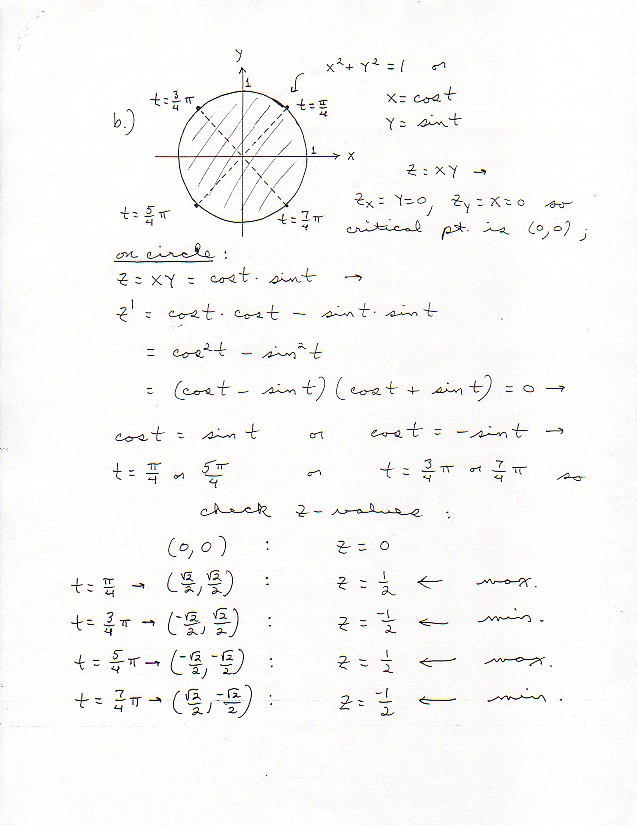 Y
x² + y² = 1 or
1
t = 3/4 π
t = π/4
x = cos t
b.)
y = sin t
1
x
z = xy →
t = 5/4 π
t = 7/4 π
z_x = y = 0, z_y = x = 0 so
critical pt. is (0,0) ;
on circle :
z = xy = cos t · sin t →
z' = cos t · cos t − sin t · sin t
= cos² t − sin² t
= (cos t − sin t)(cos t + sin t) = 0 →
cos t = sin t or cos t = −sin t →
t = π/4 or 5π/4 or t = 3/4 π or 7/4 π so
check z-values :
(0,0) : z = 0
t = π/4 → (√2/2, √2/2) : z = 1/2 ← max.
t = 3/4 π → (-√2/2, √2/2) : z = -1/2 ← min.
t = 5/4 π → (-√2/2, -√2/2) : z = 1/2 ← max.
t = 7/4 π → (√2/2, -√2/2) : z = -1/2 ← min.